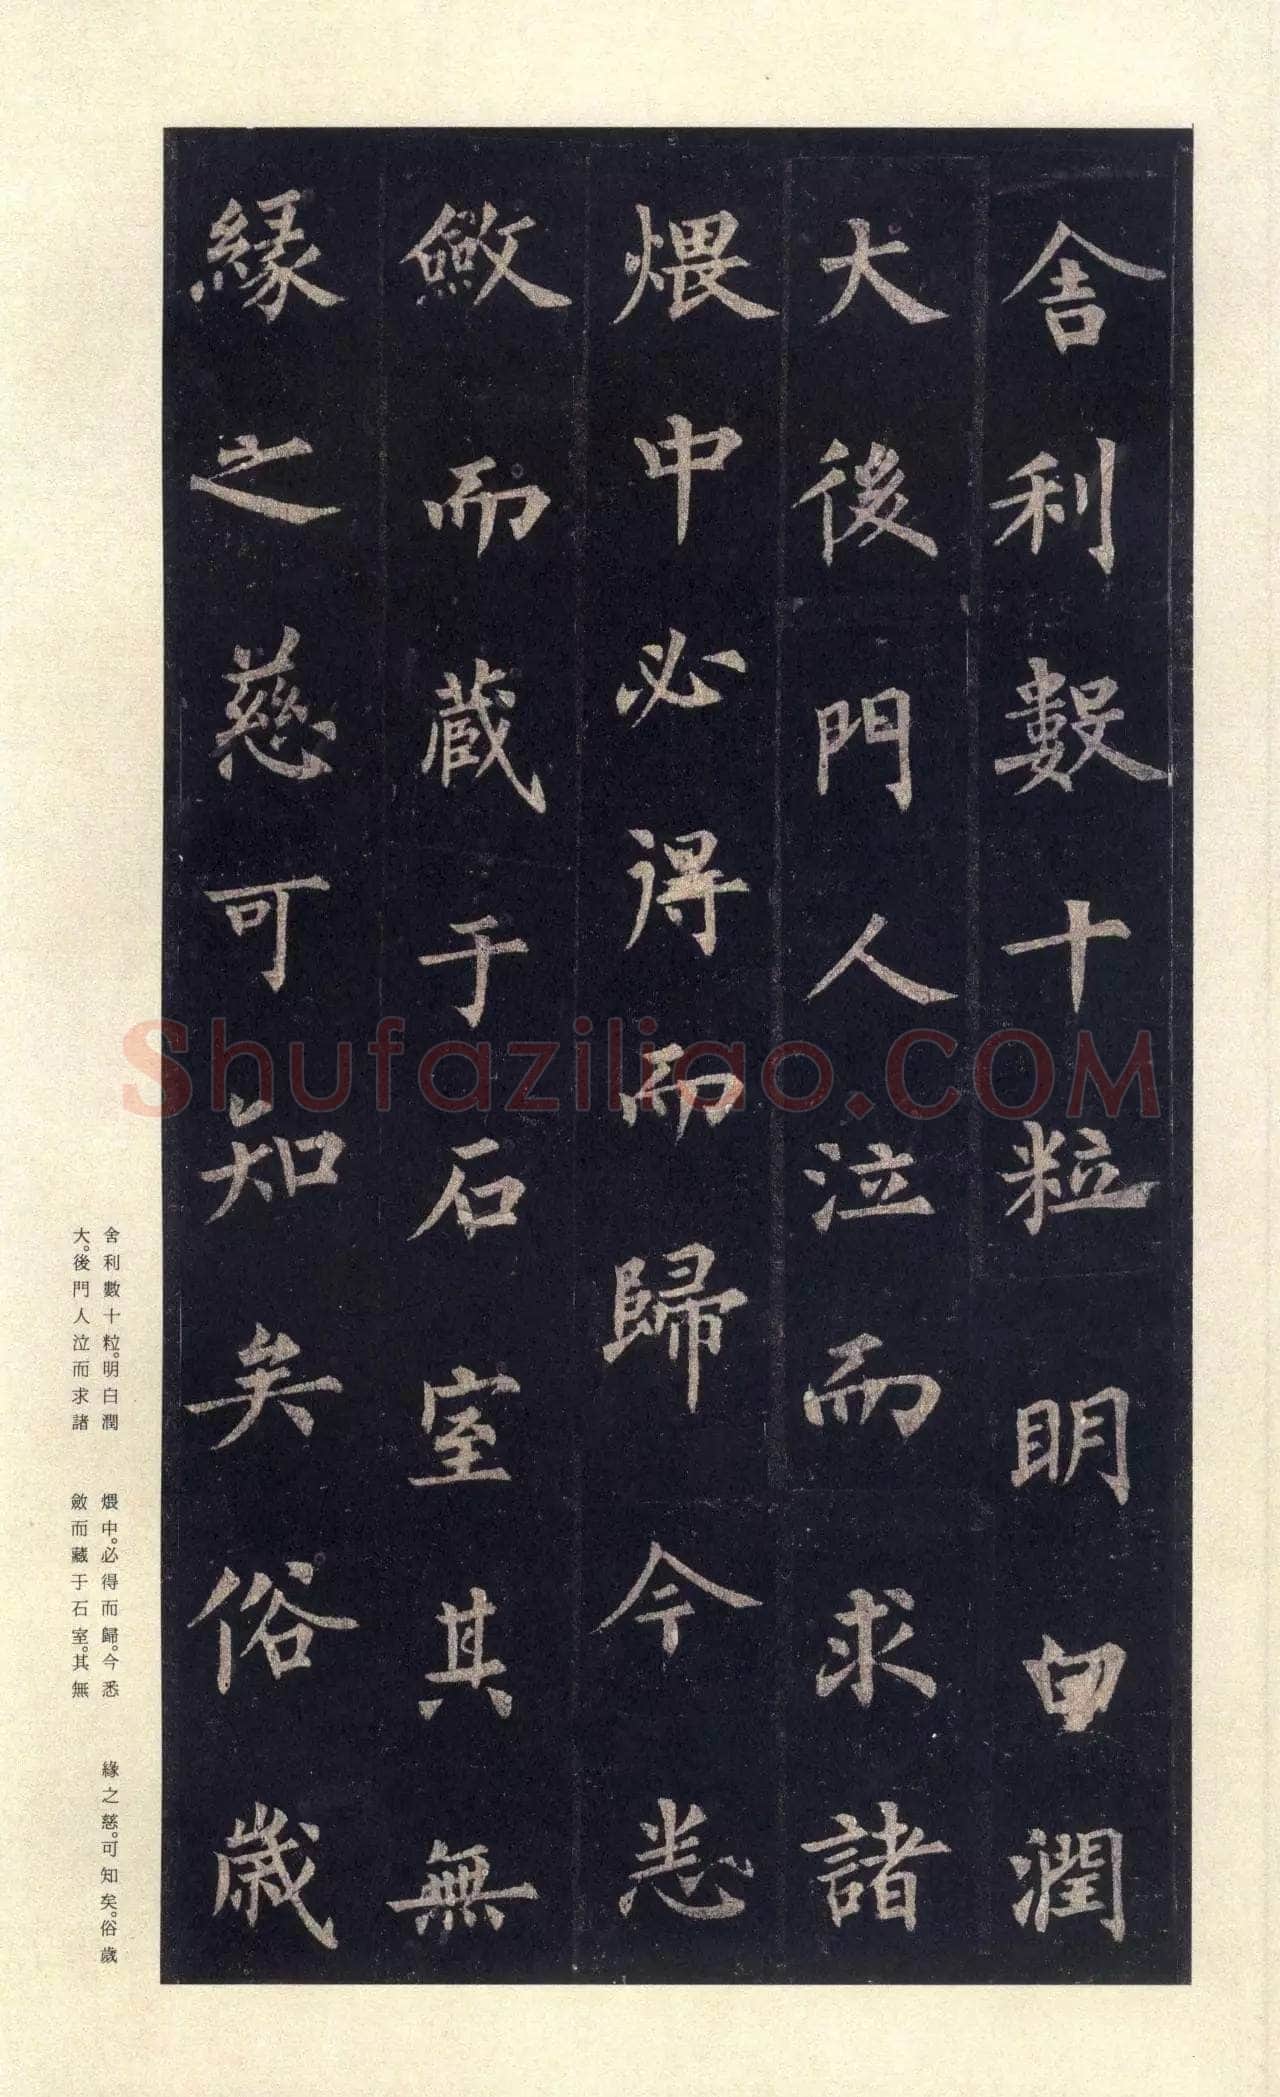 舍利數十粒明白潤
大後門人泣而求諸
煨中必得而歸今悉
斂而藏于石室其無
緣之慈可知矣俗歲
Shufaziliao.COM
舍利數十粒。明白潤
大。後門人泣而求諸
煨中。必得而歸。今悉
斂而藏于石室。其無
緣之慈。可知矣。俗歲